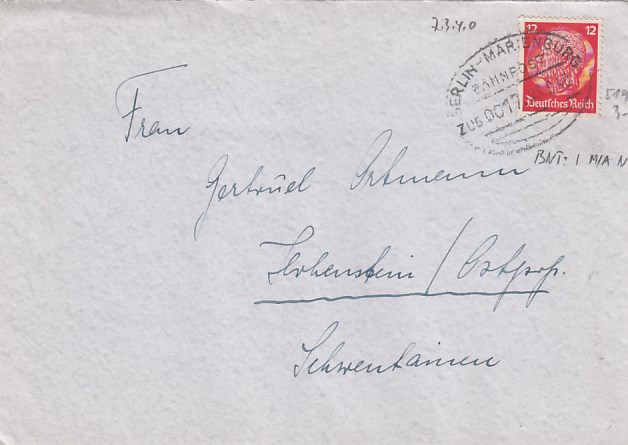 7.3.40
12 12
Deutsches Reich
BERLIN-MARIENBURG
BAHNPOST
ZUG 0017
519
3-
BNT: I M/A N
Frau
Gertrud Ortmann
Hohenstein / Ostpr.
Schwentainen